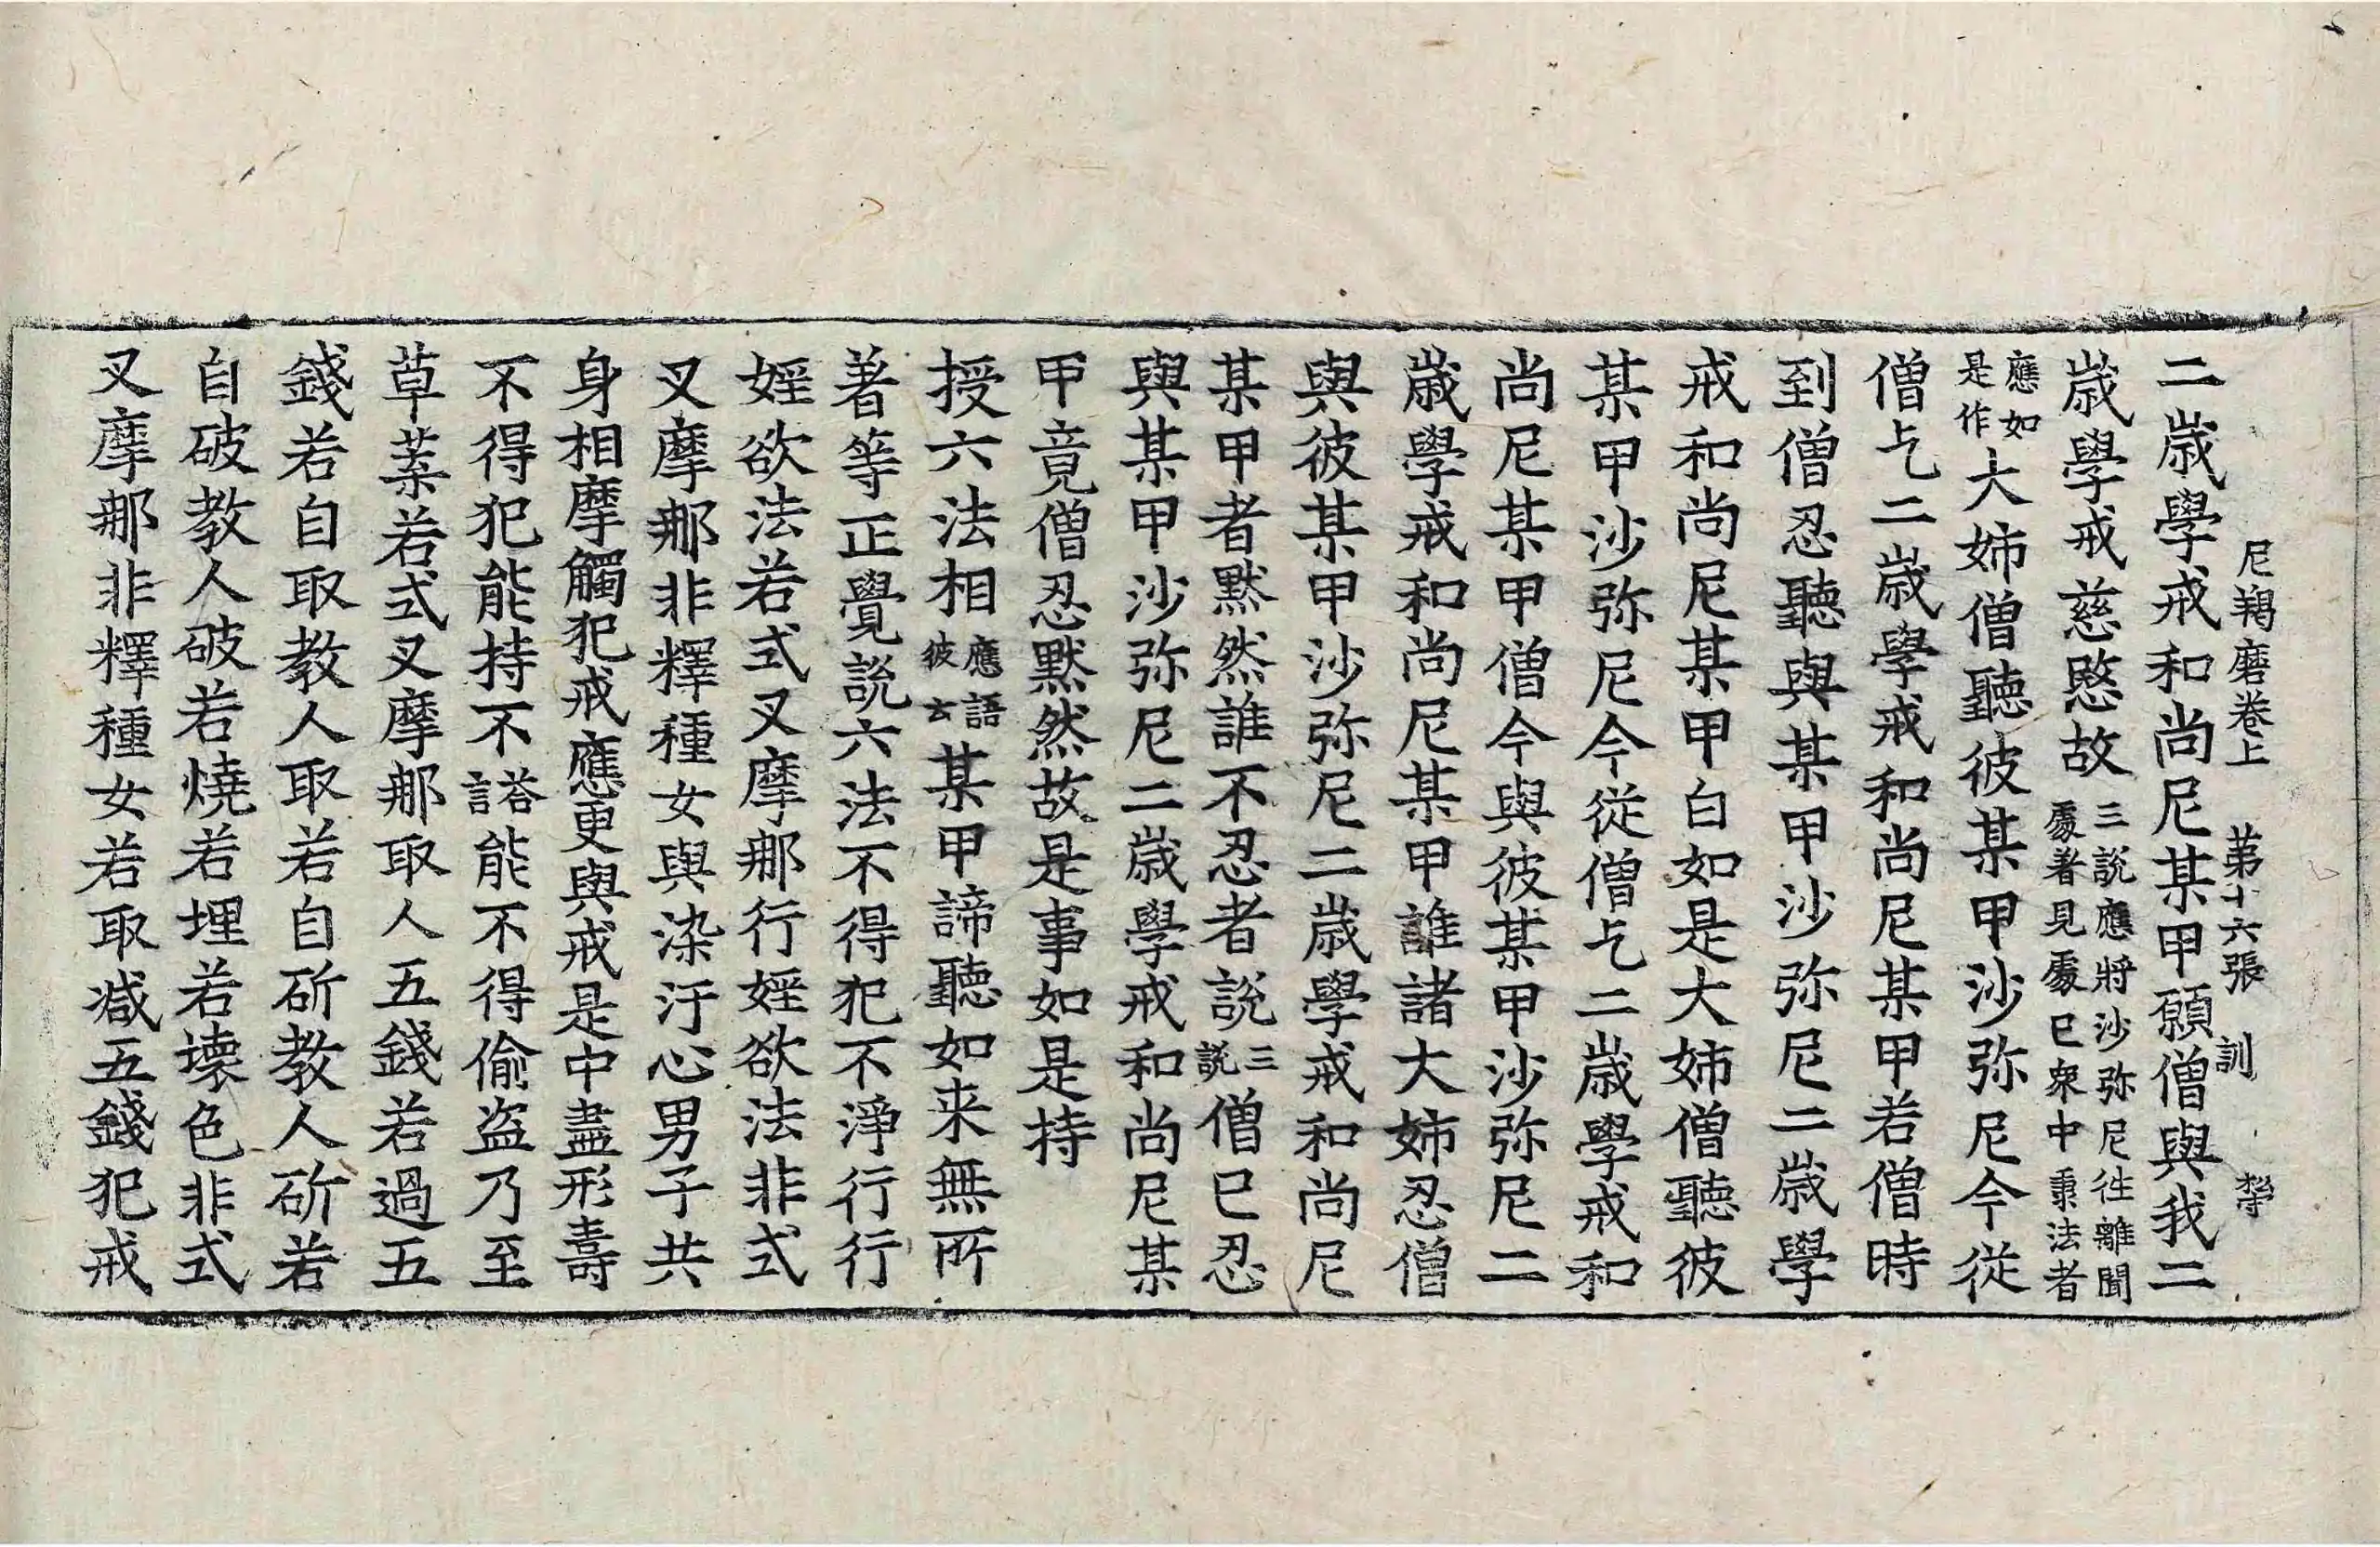 尼羯磨卷上 第十六張 訓
二歲學戒和尚尼某甲願僧與我二
歲學戒慈愍故三說應將沙弥尼往離聞
處著見處已衆中秉法者
應如
是作大姉僧聽彼某甲沙弥尼今從
僧乞二歲學戒和尚尼某甲若僧時
到僧忍聽與某甲沙弥尼二歲學
戒和尚尼某甲白如是大姉僧聽彼
某甲沙弥尼今從僧乞二歲學戒和
尚尼某甲僧今與彼某甲沙弥尼二
歲學戒和尚尼某甲誰諸大姉忍僧
與彼某甲沙弥尼二歲學戒和尚尼
某甲者默然誰不忍者說三說僧已忍
與某甲沙弥尼二歲學戒和尚尼某
甲竟僧忍默然故是事如是持
授六法相應語彼云某甲諦聽如来無所
著等正覺說六法不得犯不淨行行
婬欲法若式叉摩那行婬欲法非式
叉摩那非釋種女與染汙心男子共
身相摩觸犯戒應更與戒是中盡形壽
不得犯能持不答言能不得偷盗乃至
草葉若式叉摩那取人五錢若過五
錢若自取教人取若自斫教人斫若
自破教人破若燒若埋若壞色非式
叉摩那非釋種女若取减五錢犯戒